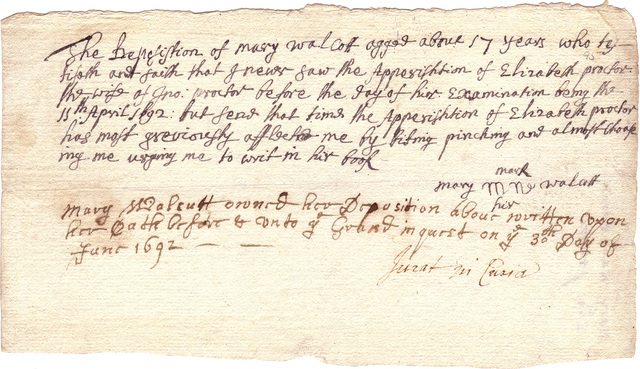 The Deposistion of mary walcott agged about 17 years who ty-
tifieth and saith that I never saw the Apperishtion of Elizabeth procter
the wife of Jno: procter before the day of hir Examination being the
11th April 1692: but send that time the Apperishtion of Elizabeth procter
has most greviously afflected me by biting pinching and almost choak
ing me urging me to writ in hir book
mark
mary MW walcutt
hir
Mary Walcutt owned her Deposition aboue written vpon
her Oath before & vnto ye Grand inquest on ye 30th Day of
June 1692 — —
Jurat in Curia